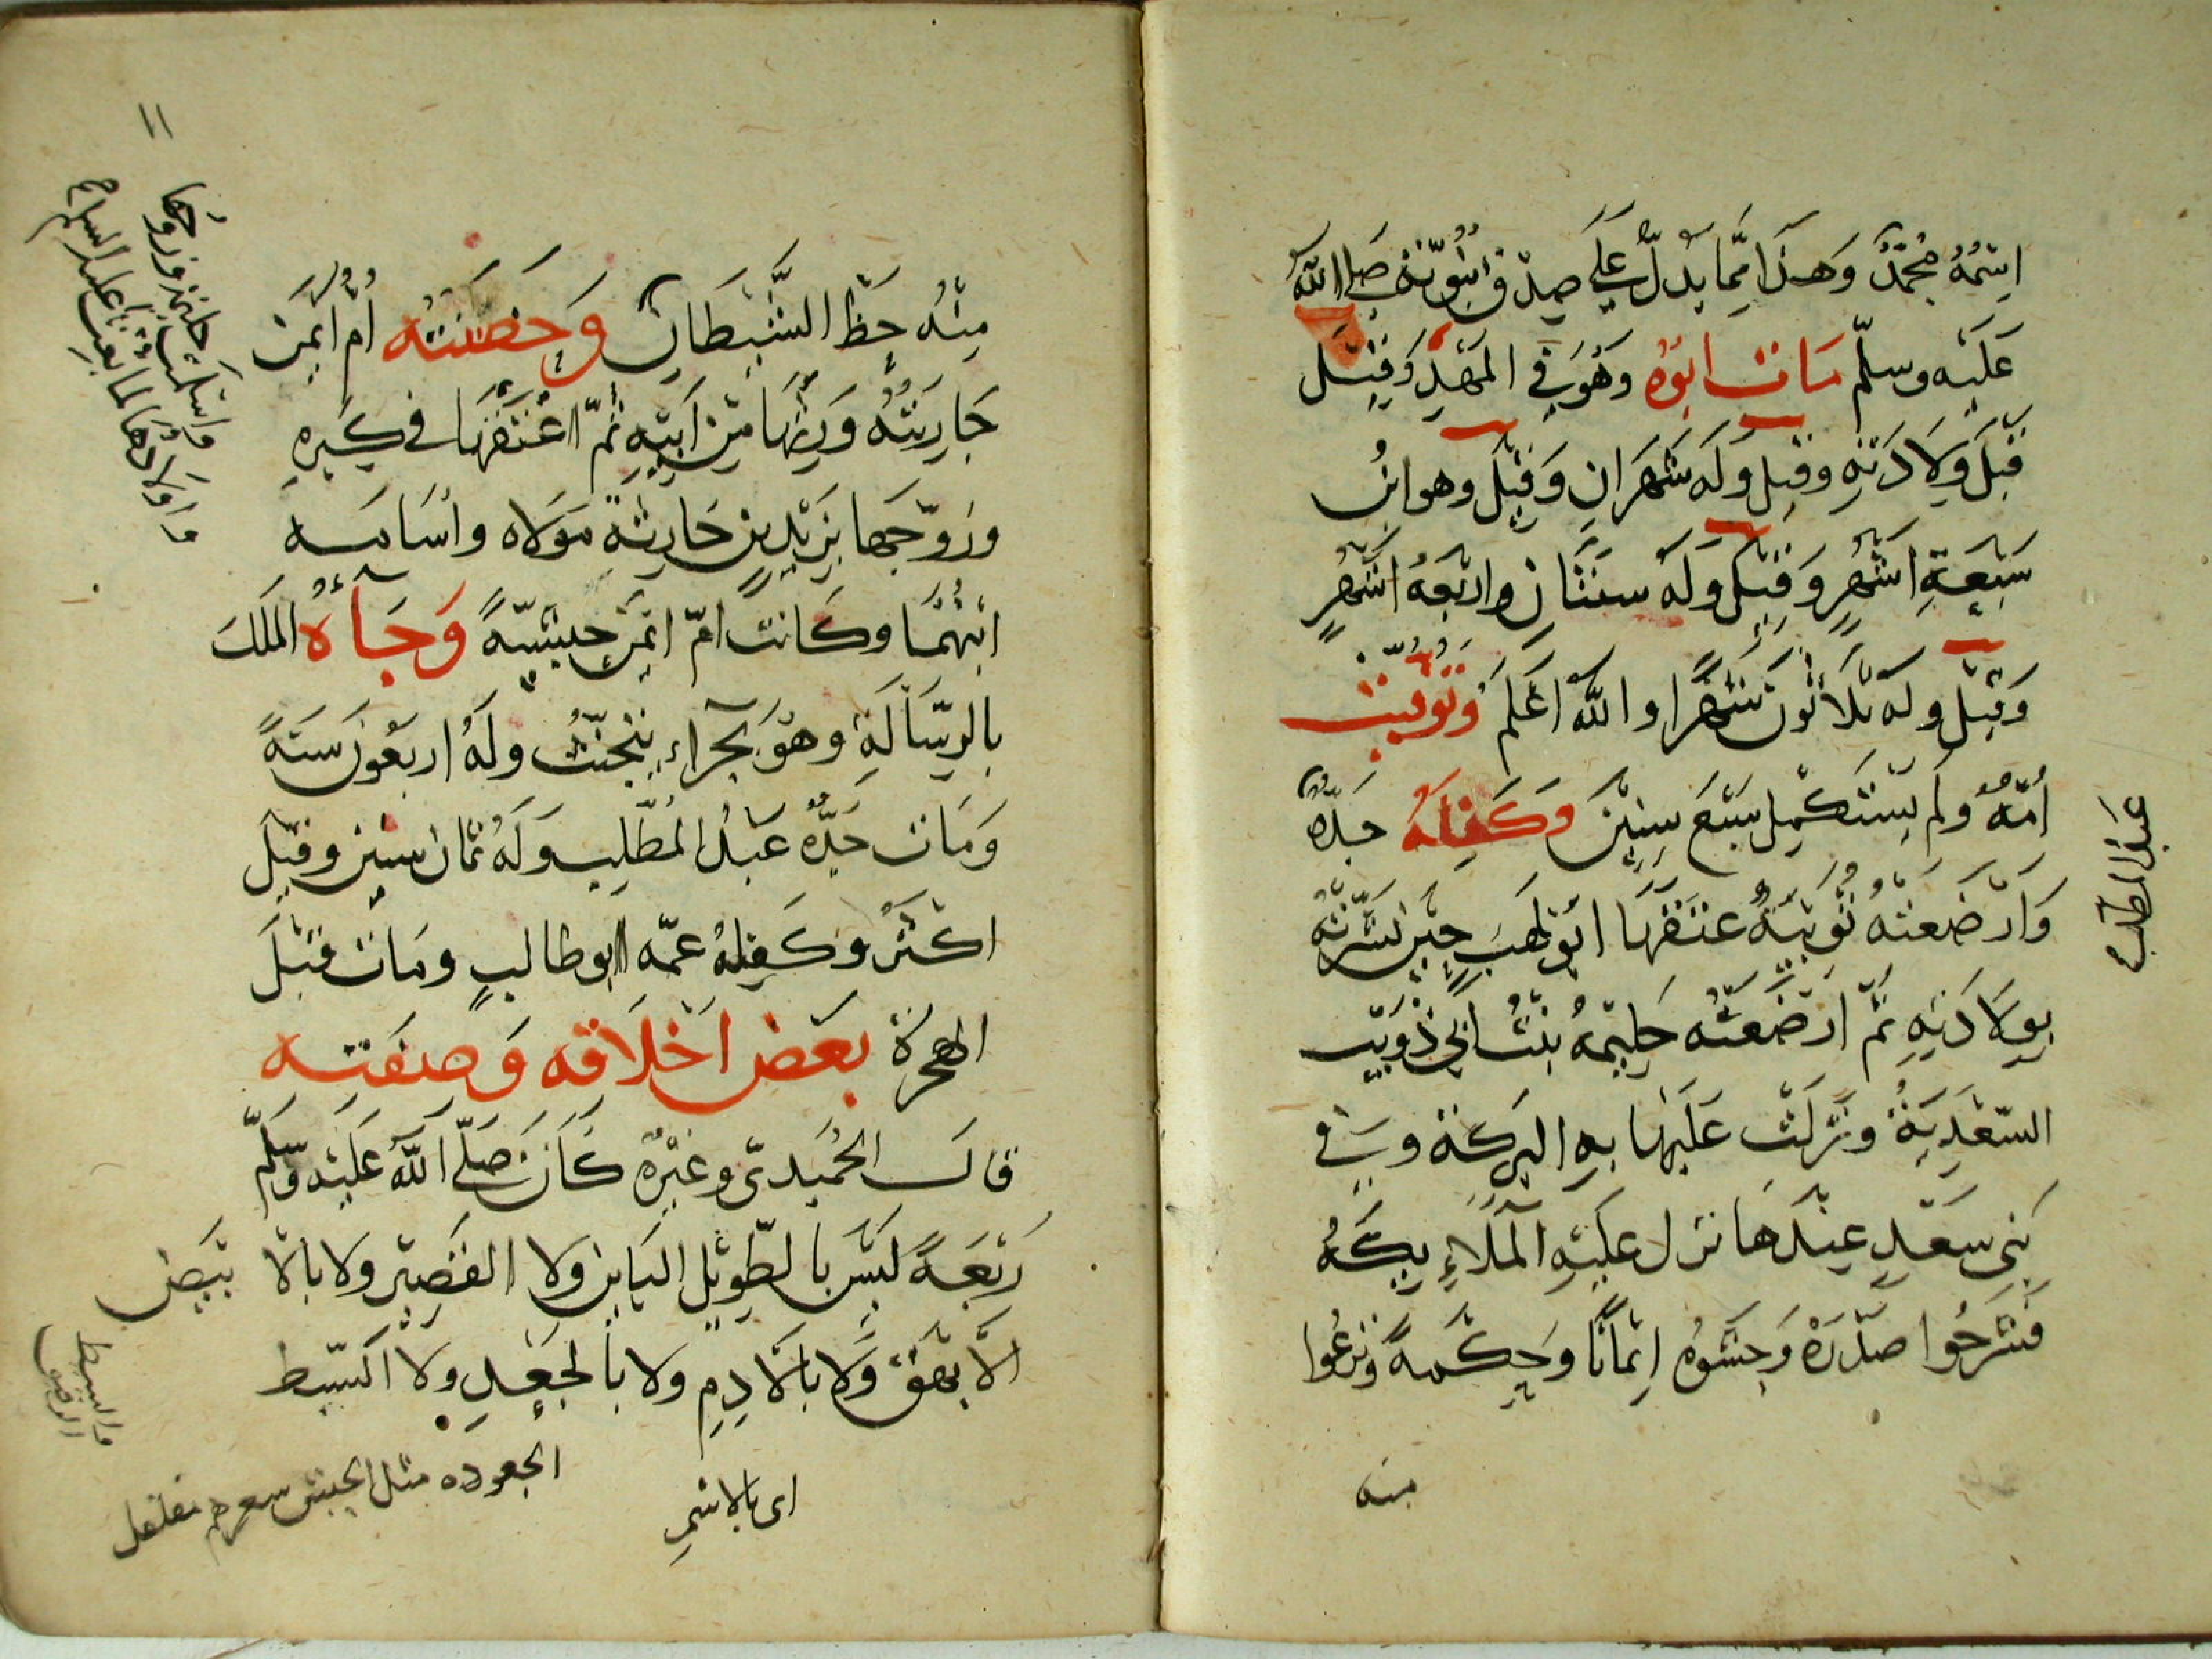 اسْمُهُ مُحَمَّدٌ وَهَذَا مِمَّا يَدُلُّ عَلَى صِدْقِ نُبُوَّتِهِ صَلى الله
عَلَيْه وسلّم مَاتَ ابُوْهُ وَهُوَ فِي المَهْدِ وَقِيْلَ
قَبْلَ وِلَادَتِهِ وقيل وَلَه شَهْرَانِ وَقِيْلَ وهو ابنُ
سَبْعَةِ اَشْهُرٍ وَقِيْلَ ولَهُ سنَتَانِ واربَعَةُ اَشْهُرٍ
وَقِيْلَ وله ثلَاثُونَ شَهْرًا والله اَعْلَم وَتُوُفِّيَتْ
اُمُّهُ ولم يَسْتَكْمِلْ سَبْعَ سِنِيْنَ وَكَفِلَهُ جَدُّهُ
عَبْدُ المطلب
وَاَرْضَعَتْهُ ثُوَيْبَةُ عتَقَهَا ابُو لَهَبٍ حِيْنَ بَشَّرَتْهُ
بِوِلَادَتِهِ ثُمَّ اَرْضَعَتْه حَلِيْمَةُ بِنْتُ ابي ذُوَيْبٍ
السّعْدِيَةُ ونَزَلَتْ عَلَيْهَا بِهِ البَرَكة وَفي
بَنِي سَعْدٍ عِنْدَهَا نزل عَلَيْهِ المَلَاءِيكَةُ
فَشَرَحُوا صَدْرَهْ وَحَشَوْهُ اِيْمَانًا وَحِكْمَةً وَنَزعُوا
منه
١١
واسلمت حليمة وزوجها
واولادها لما بعث عليه السلام
مِنْهُ حَظّ الشَّيْطَانِ وَحَضَنَتْه اُمّ اَيْمَن
جَارِيَتُهُ وَرِثَهَا مِنْ اَبِيْهِ ثُمّ اعْتَقَهَا في كِبَرِهِ
وزوّجَها بِزَيْدِ بنِ حَارِثَةَ مَوْلَاه واُسَامَه
ابْنُهُمَا وكَانت امّ ايمَن حبشيّةً وَجَآءَهُ المَلَكُ
بالرِّسَالَةِ وهُوَ بحِرَاء يتَحَنّثُ ولَهُ اربَعُونَ سَنَةً
وَمَات جَدُّهُ عَبْدُ المُطَّلِب وَلَهُ ثمان سنين وقيل
اكثَرُ وكَفِلَهُ عمّه ابو طالبٍ ومَات قَبْلَ
الهجرَة بَعْض اَخْلَاقِه وَصِفَتِه
قالَ الحُمَيدىّ وغَيْرُهُ كَانَ صَلَّى اللهُ عَلَيْه وَسَلَّم
رَبْعَةً لَيْسَ بالطّوِيْلِ البَايِنِ ولا القَصِيْرِ ولا بالا بْيَضِ
الاَ بهَق وَلا بالآدِمِ ولا بالجَعْدِ ولا السَّبط
والسبط
اى بالاسْمرِ
الجعوده مثل الحبش سعرهم مفلفل